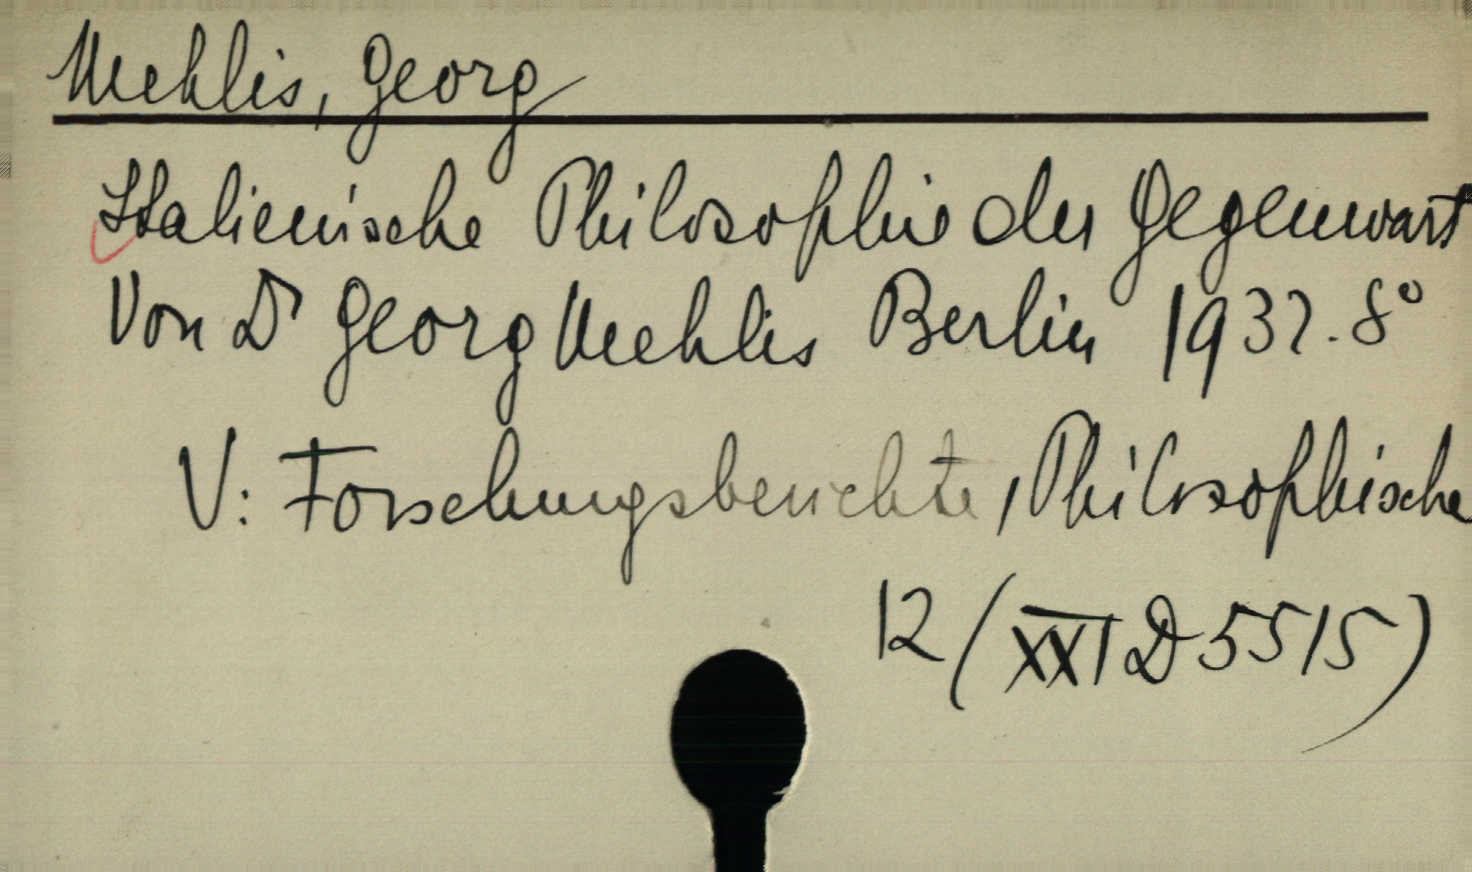 Mehlis, Georg
Italienische Philosophie der Gegenwart
Von Dr Georg Mehlis Berlin 1932. 8°
V: Forschungsberichte, Philosophische
12 (XXI D 5515)